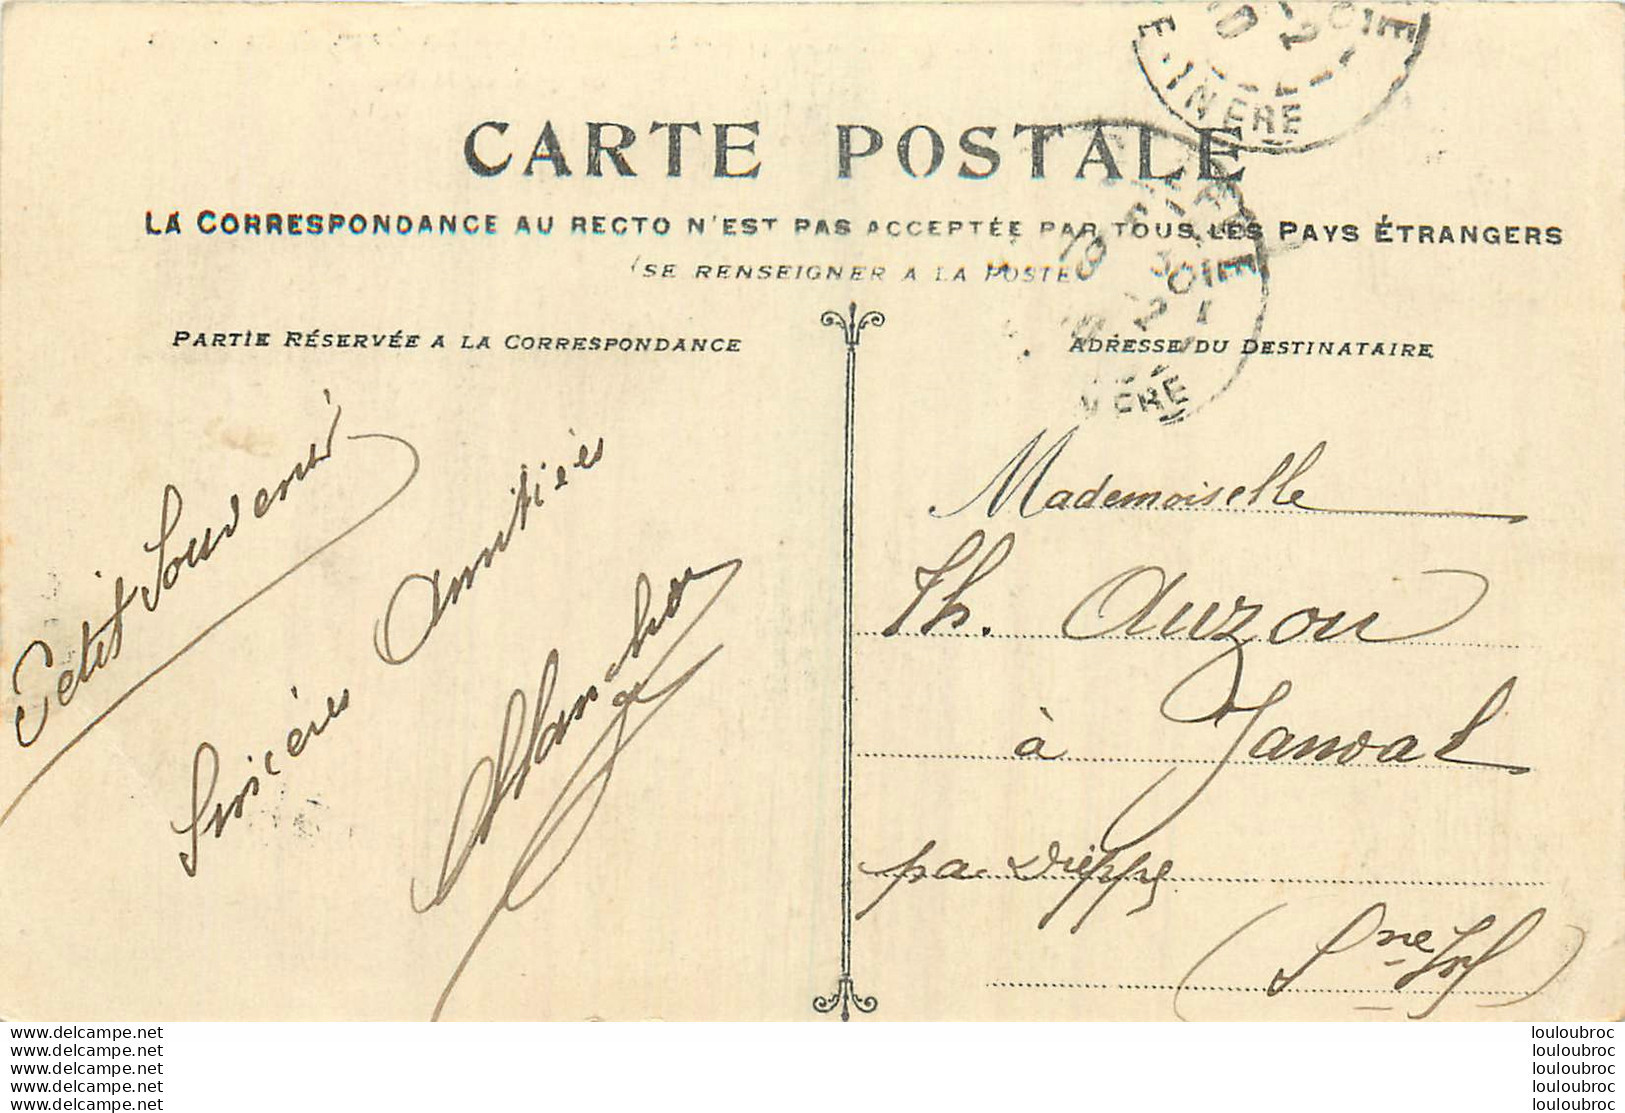 CARTE POSTALE
LA CORRESPONDANCE AU RECTO N'EST PAS ACCEPTÉE PAR TOUS LES PAYS ÉTRANGERS
(SE RENSEIGNER A LA POSTE
PARTIE RÉSERVÉE A LA CORRESPONDANCE
ADRESSE DU DESTINATAIRE
Petit Souvenir
Sincères Amitiées
Mademoiselle
Th. Auzou
à Janval
par Dieppe
(Sne Infre)
www.delcampe.net
www.delcampe.net
www.delcampe.net
www.delcampe.net
www.delcampe.net
louloubroc
louloubroc
louloubroc
louloubroc
louloubroc